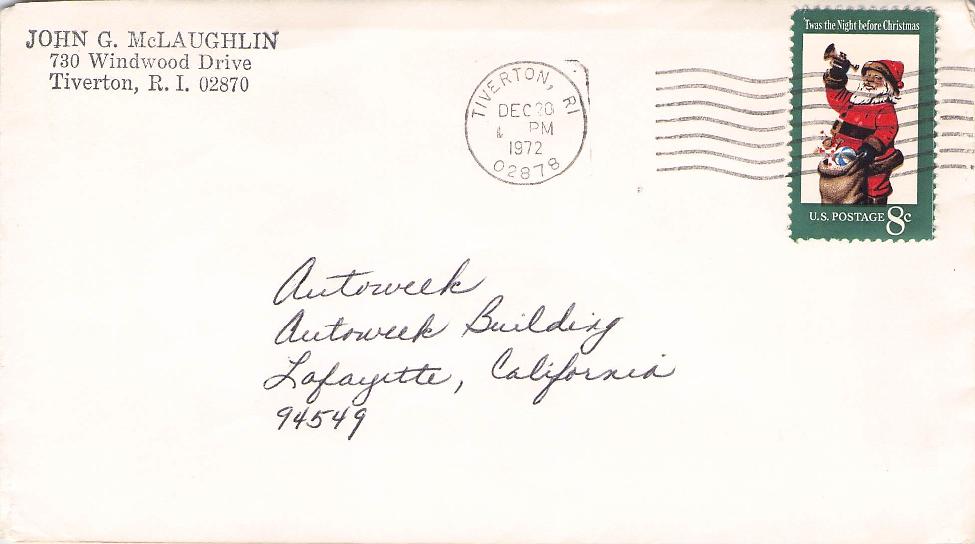 JOHN G. McLAUGHLIN
730 Windwood Drive
Tiverton, R. I. 02870
TIVERTON, RI
DEC 20
PM
1972
02878
'Twas the Night before Christmas
U.S. POSTAGE 8c
Autoweek
Autoweek Building
Lafayette, California
94549